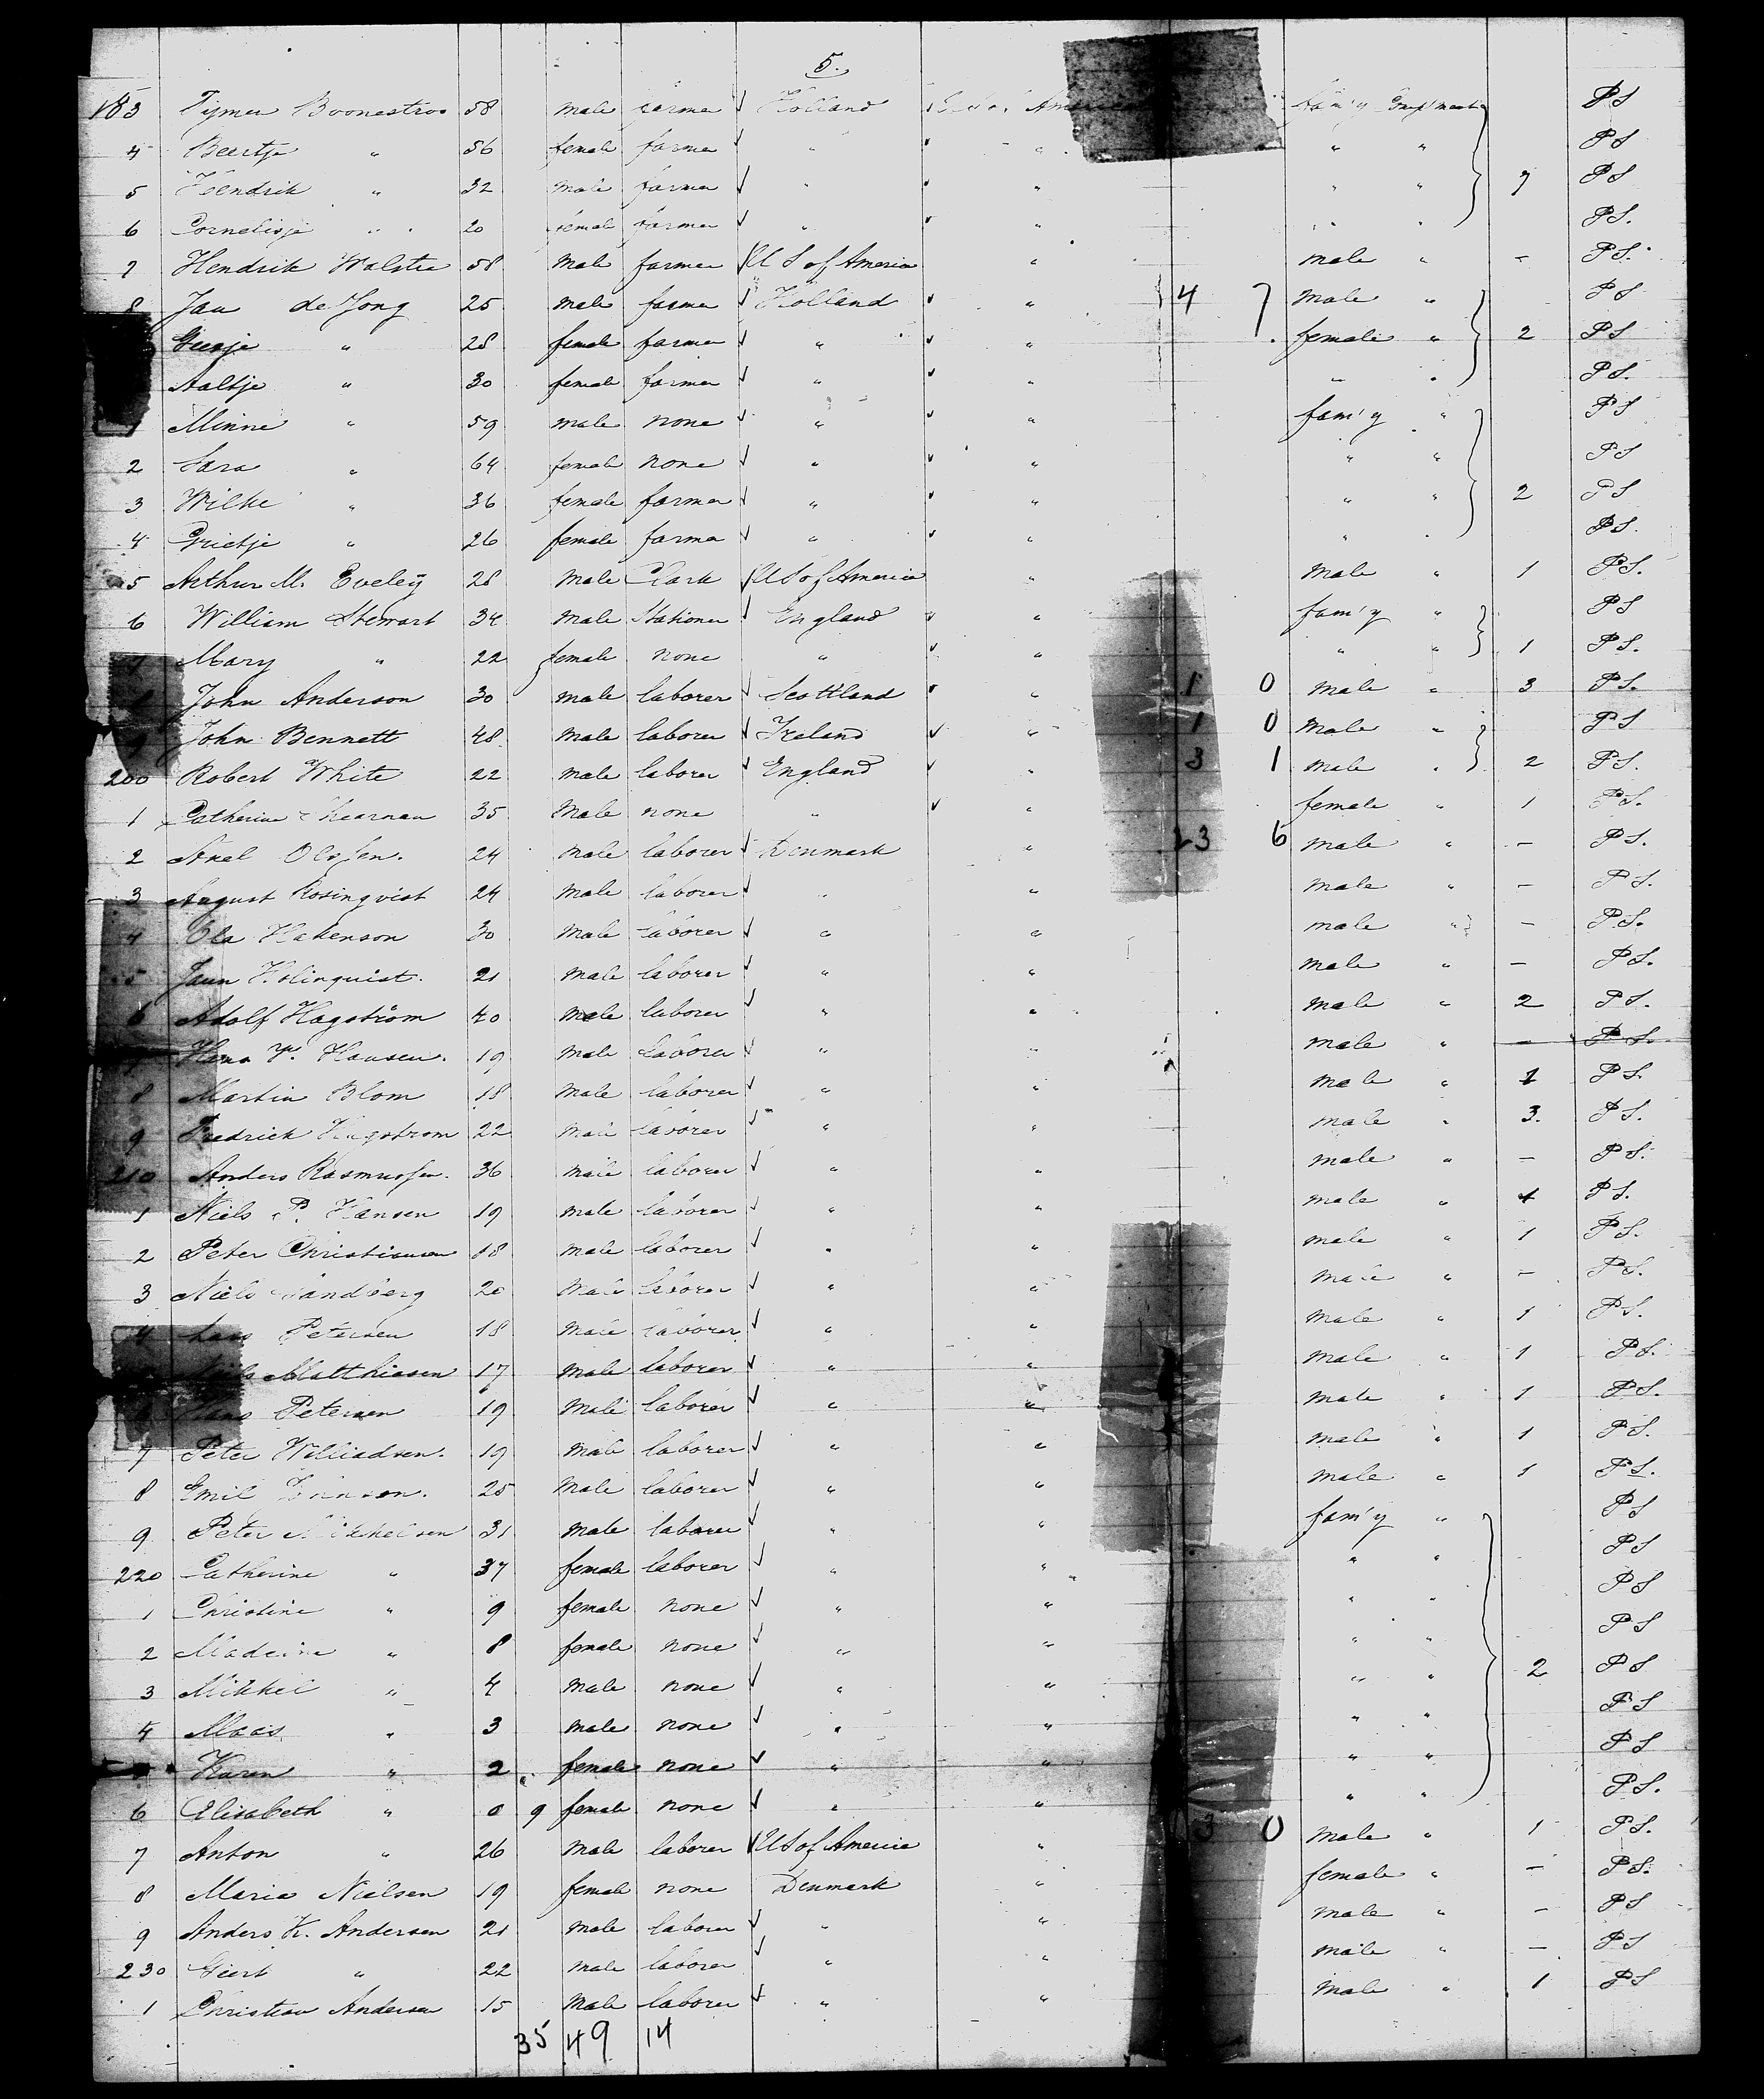 5.
183 Tymen Boonestroo 58 male farmer ✓ Holland ✓ fam'y Comp'ment PS
4 Beertje " 56 female farmer ✓ " ✓ " " " PS
5 Hendrik " 32 male farmer ✓ " ✓ " " " 7 PS
6 Cornelisje " 20 female farmer ✓ " ✓ " " " PS.
7 Hendrik Walstra 58 male farmer ✓ U S of America " male " - PS.
8 Jan de Jong 25 male farmer ✓ Holland ✓ " 4 7 male " PS
Geesje " 28 female farmer ✓ " ✓ " female " 2 PS
Aaltje " 30 female farmer ✓ " ✓ " " " PS.
1 Minne " 59 male none ✓ " ✓ " fam'y " PS
2 Sara " 64 female none ✓ " ✓ " " " PS
3 Wilke " 36 female farmer ✓ " ✓ " " " 2 PS
4 Grietje " 26 female farmer ✓ " ✓ " " " PS.
5 Arthur M. Eveley 28 male Clark ✓ US of America " male " 1 PS.
6 William Stewart 34 male Stationer ✓ England ✓ " fam'y " PS
7 Mary " 22 female none " ✓ " " " 1 PS.
John Anderson 30 male laborer ✓ Scottland ✓ " 1 0 male " 3 PS.
9 John Bennett 48 male laborer ✓ Ireland ✓ " 1 0 male " PS
200 Robert White 22 male laborer ✓ England ✓ " 3 1 male " 2 PS.
1 Catherine 35 male none " ✓ " female " 1 PS.
2 Axel Olofsen. 24 male laborer ✓ Denmark " 23 6 male " - PS.
3 August Rosinqvist 24 male laborer ✓ " " male " - PS.
4 Ola Hakenson 30 male laborer ✓ " " male " - PS.
5 21 male laborer ✓ " " male " - PS.
6 Adolf Hagström 40 male laborer ✓ " " male " 2 PS.
Hans Hansen. 19 male laborer ✓ " " male " - PS.
8 Martin Blom 18 male laborer ✓ " " male " 1 PS.
9 Fredrick Hagstrom 22 male laborer ✓ " " male " 3. PS.
210 Anders Rasmussen. 36 male laborer ✓ " " male " - PS.
1 Niels P. Hansen 19 male laborer ✓ " " male " 1 PS.
2 Peter Christiansen 18 male laborer ✓ " " male " 1 PS.
3 Niels Sandberg 20 male laborer ✓ " " male " - PS.
4 Lars Petersen 18 male laborer ✓ " " male " 1 PS.
Niels Matthiesen 17 male laborer ✓ " " male " 1 PS.
Hans Petersen 19 male laborer ✓ " " male " 1 PS.
7 Peter Williadsen. 19 male laborer ✓ " " male " 1 PS.
8 Emil 25 male laborer ✓ " " male " 1 PS.
9 Peter Mikkelsen 31 male laborer ✓ " " fam'y " PS
220 Catherine " 37 female laborer ✓ " " " " PS
1 Christine " 9 female none ✓ " " " " PS
2 " 8 female none ✓ " " " " PS
3 Mikkel " 4 male none ✓ " " " " 2 PS
4 Maas " 3 male none ✓ " " " " PS
Karen " 2 female none ✓ " " " " PS
6 Elisabeth " 0 9 female none ✓ " " " " PS.
7 Anton " 26 male laborer ✓ US of America " 3 0 male " 1 PS.
8 Maria Nielsen 19 female none Denmark " female " - PS.
9 Anders K. Andersen 21 male laborer ✓ " " male " - PS
230 Geert " 22 male laborer ✓ " " male " - PS
1 Christian Andersen 15 male laborer ✓ " " male " 1 PS
35 49 14